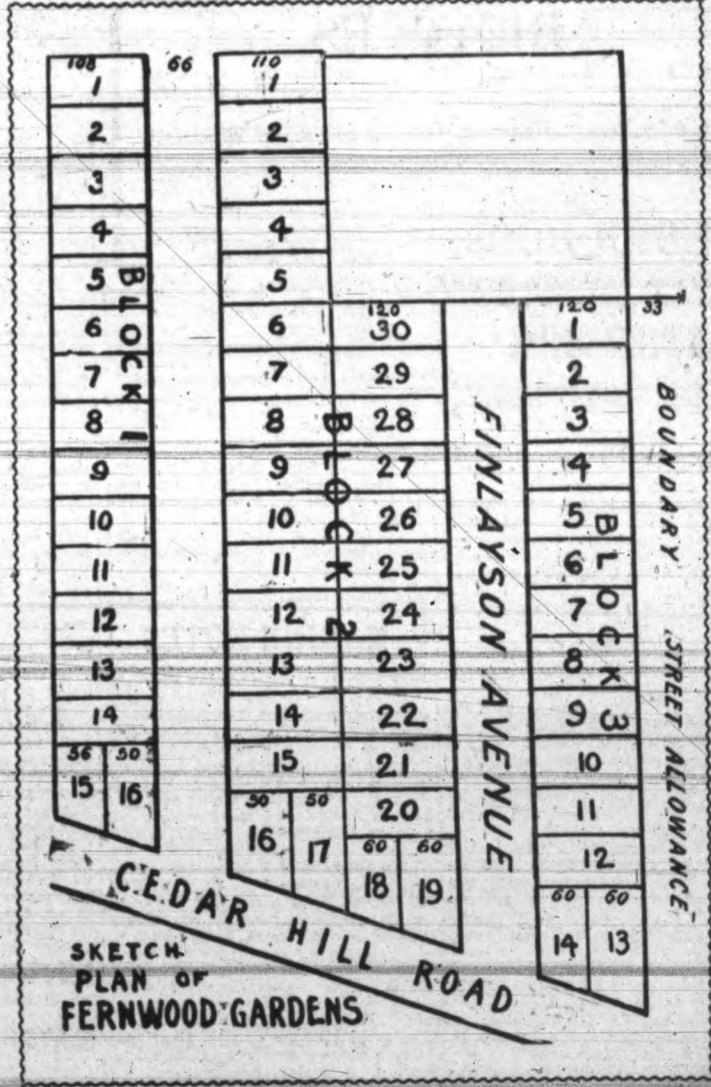 108
1
2
3
4
5
6
7
8
9
10
11
12
13
14
56 50
15 16
BLOCK 1
66
110
1
2
3
4
5
6
7
8
9
10
11
12
13
14
15
50 50
16 17
BLOCK 2
120
30
29
28
27
26
25
24
23
22
21
20
60 60
18 19
FINLAYSON AVENUE
120
2
3
4
5
6
7
8
9
10
11
12
60 60
14 13
BLOCK 3
33
BOUNDARY STREET ALLOWANCE
CEDAR HILL ROAD
SKETCH
PLAN OF
FERNWOOD GARDENS